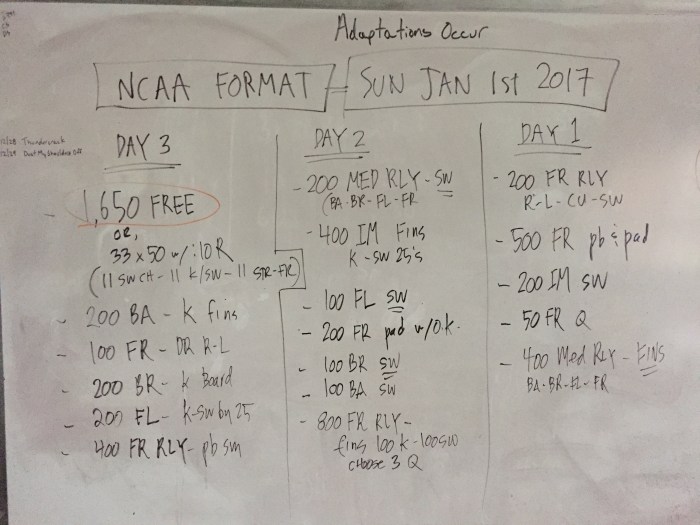 Adaptations Occur
NCAA FORMAT - SUN JAN 1st 2017
DAY 3
- 1,650 FREE
OR,
33 x 50 w/ :10 R
(11 SWCH - 11 K/SW - 11 STR-FR)
- 200 BA - K fins
- 100 FR - DR R-L
- 200 BR - K Board
- 200 FL - K-SW by 25
- 400 FR RLY - pb sm
DAY 2
- 200 MED RLY - SW
(BA-BR-FL-FR
- 400 IM Fins
K-SW 25's
- 100 FL SW
- 200 FR pad w/o.k.
- 100 BR SW
- 100 BA SW
- 800 FR RLY -
fins 100 K - 100 SW
choose 3 Q
DAY 1
- 200 FR RLY
R-L-CU-SW
- 500 FR pb & pad
- 200 IM SW
- 50 FR Q
- 400 Med RLY - FINS
BA-BR-FL-FR